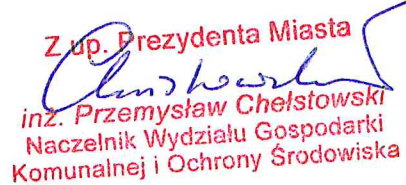 Z up. Prezydenta Miasta
inż. Przemysław Chełstowski
Naczelnik Wydziału Gospodarki
Komunalnej i Ochrony Środowiska